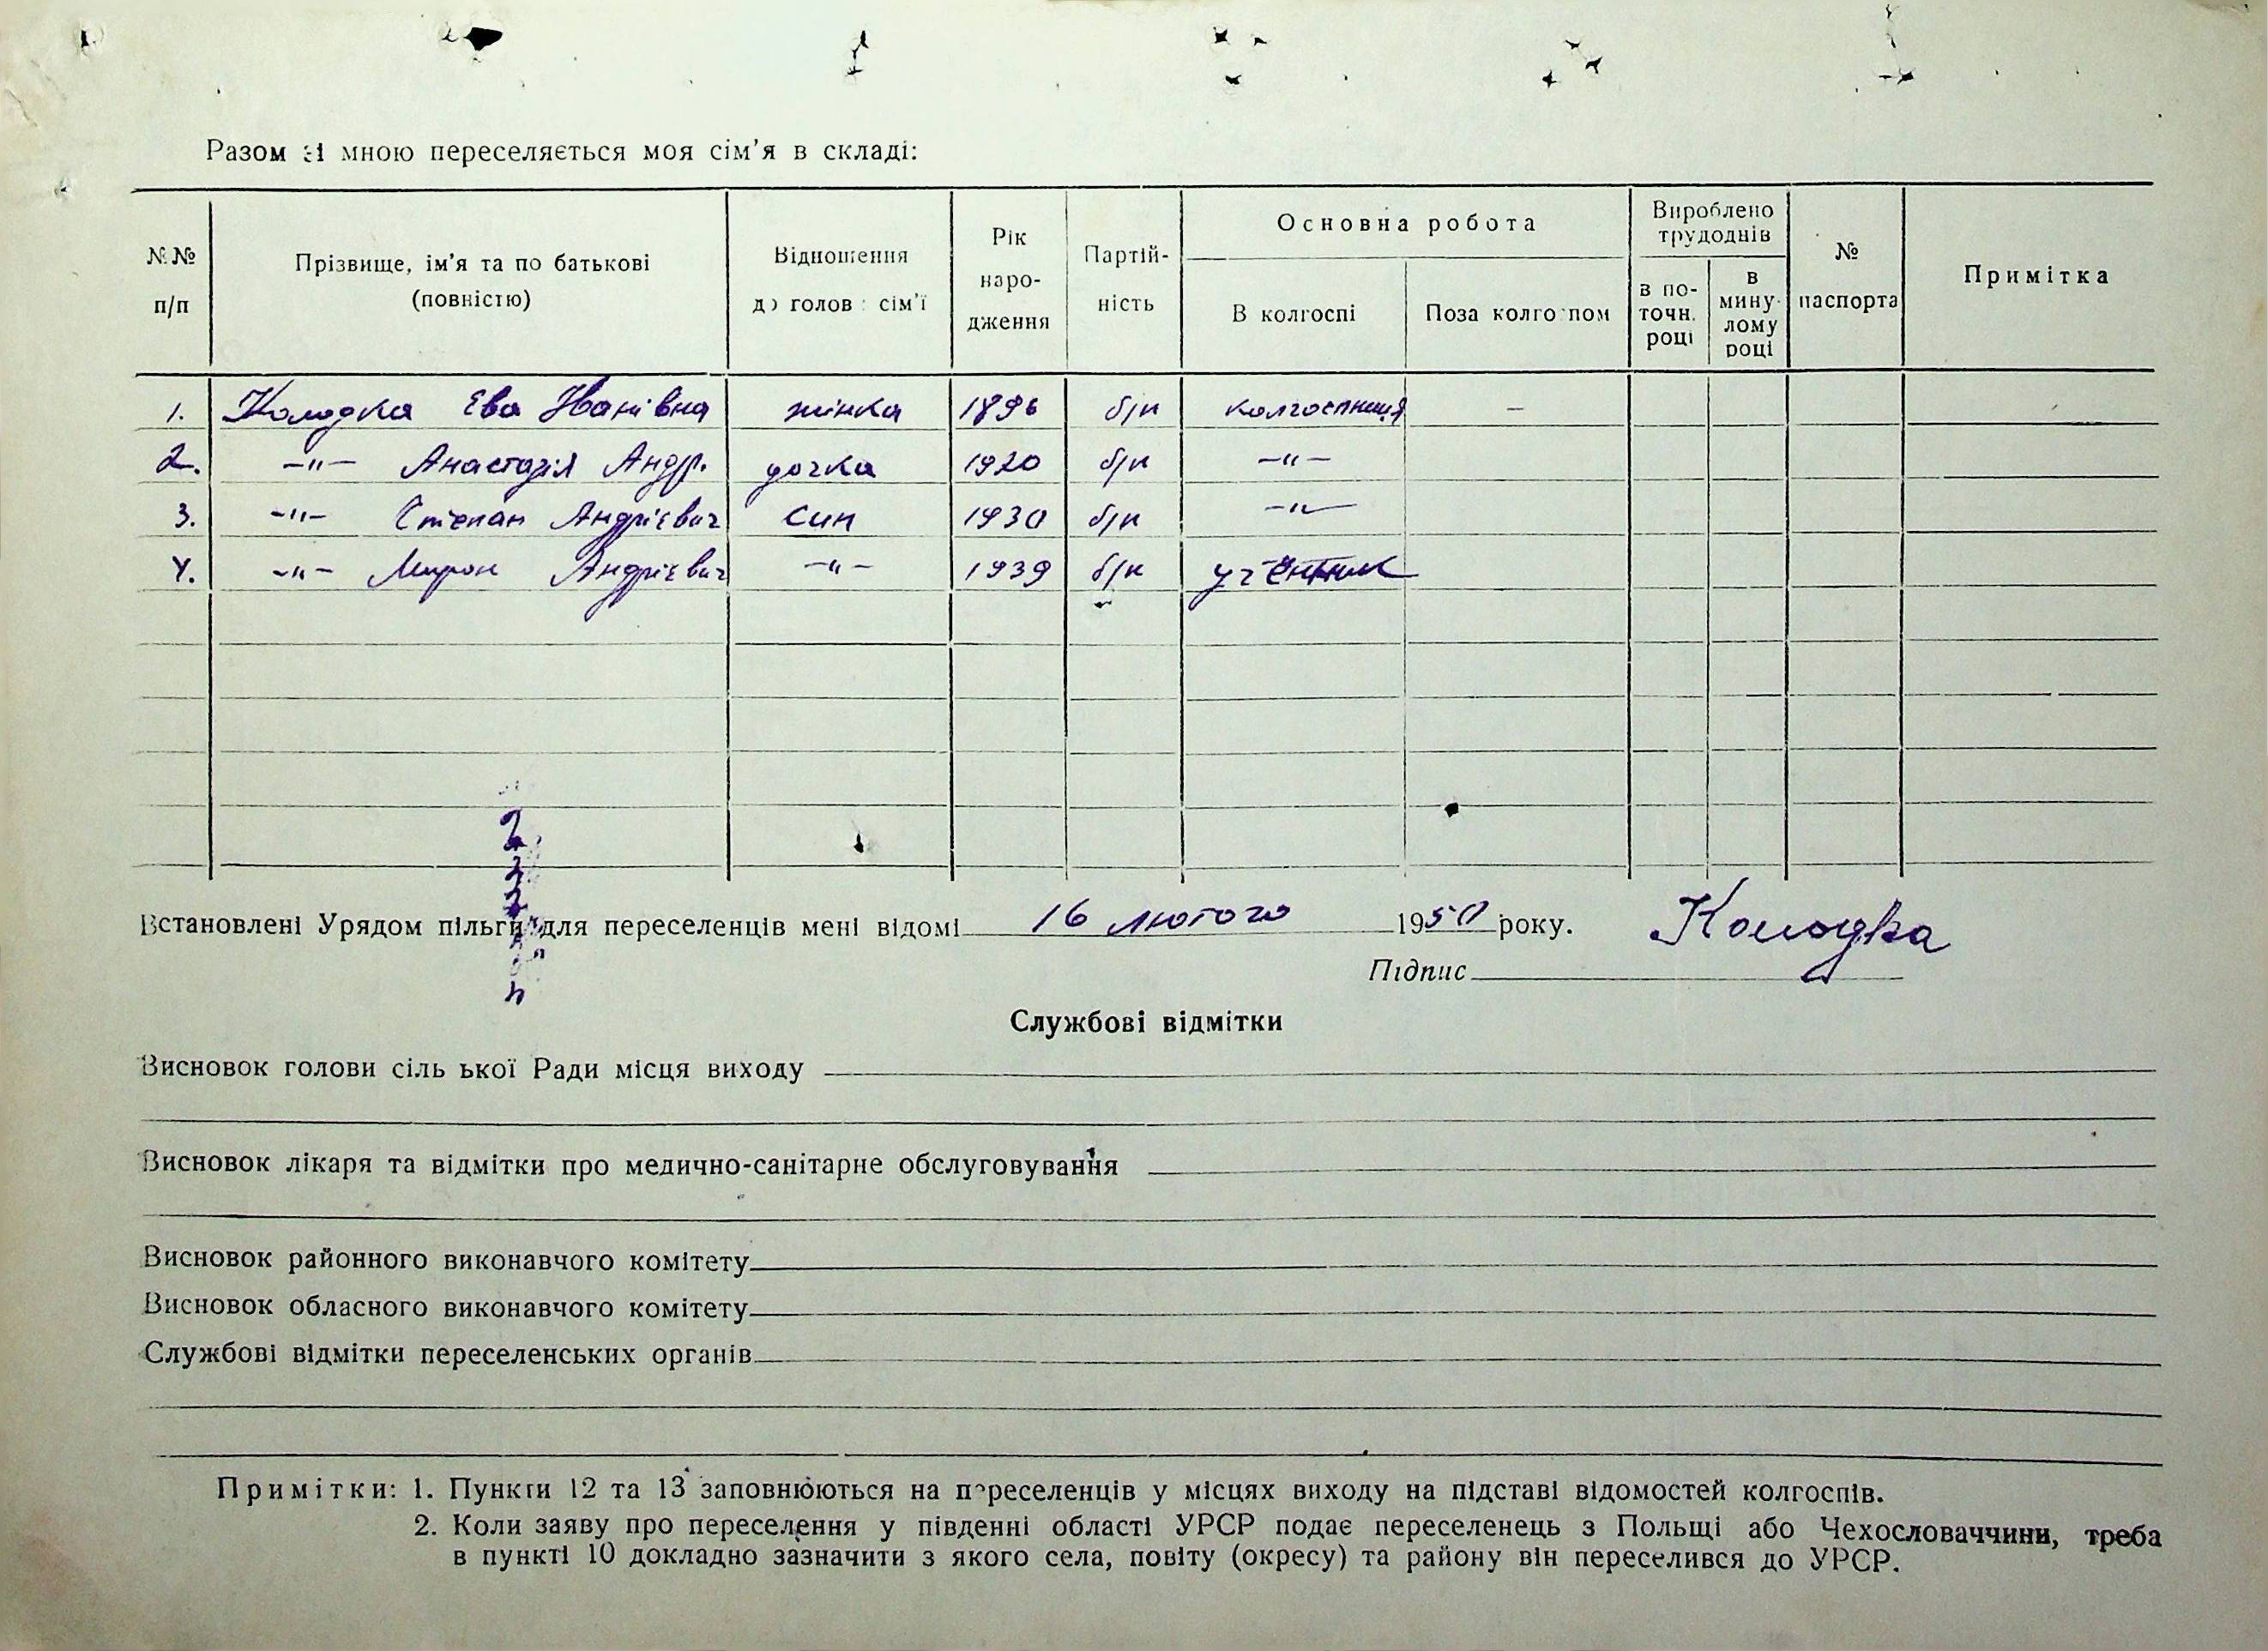 Разом зі мною переселяється моя сім'я в складі:
№№ п/п
Прізвище, ім'я та по батькові (повністю)
Відношення до голов сім'ї
Рік народження
Партійність
Основна робота
В колгоспі
Поза колгоспом
Вироблено трудоднів
в поточн. році
в минулому році
№ паспорта
Примітка
1. Колодка Ева Іванівна жінка 1896 б/п колгоспниця —
2. —"— Анастазія Андр. дочка 1920 б/п —"—
3. —"— Степан Андрієвич син 1930 б/п —"—
4. —"— Мирон Андрієвич —"— 1939 б/п
Встановлені Урядом пільги для переселенців мені відомі 16 лютого 1950 року. Колодка
Підпис
Службові відмітки
Висновок голови сільської Ради місця виходу
Висновок лікаря та відмітки про медично-санітарне обслуговування
Висновок районного виконавчого комітету
Висновок обласного виконавчого комітету
Службові відмітки переселенських органів
Примітки: 1. Пункти 12 та 13 заповнюються на переселенців у місцях виходу на підставі відомостей колгоспів.
2. Коли заяву про переселення у південні області УРСР подає переселенець з Польщі або Чехословаччини, треба
в пункті 10 докладно зазначити з якого села, повіту (окресу) та району він переселився до УРСР.